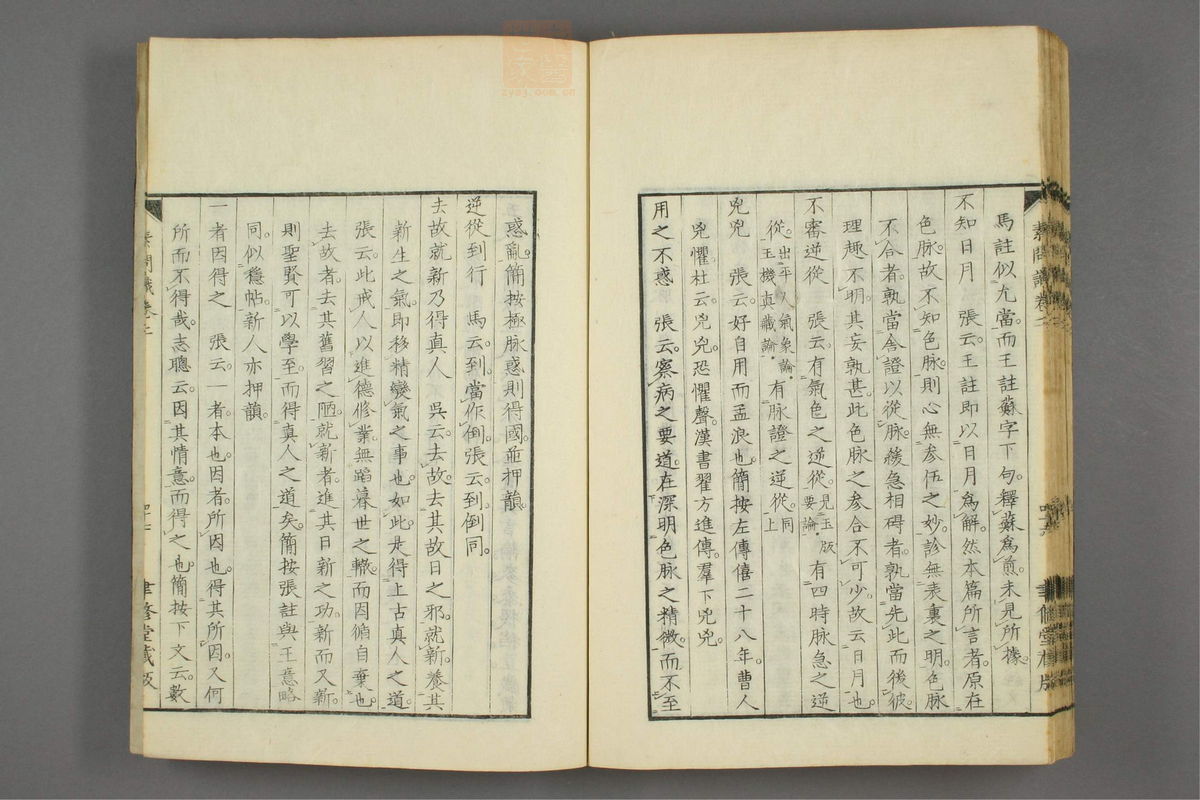 馬註似尤當。而王註蘇字下句。釋蘇爲煩。未見所據。
不知日月　張云。王註即以日月爲解。然本篇所言者。原在
色脉。故不知色脉。則心無參伍之妙。診無表裏之明。色脉
不合者。孰當舍證以從脉。緩急相碍者。孰當先此而後彼。
理趣不明。其妄孰甚。此色脉之參合不可少。故云日月也。
不審逆從　張云。有氣色之逆從。見玉版要論。有四時脉急之逆
從。出平人氣象論。玉機真藏論。有脉證之逆從。同上
兇兇　張云。好自用而孟浪也。簡按左傳僖二十八年。曹人
兇懼。杜云。兇兇恐懼聲。漢書翟方進傳。羣下兇兇
用之不惑　張云。察病之要道。在深明色脉之精微。而不至
惑亂。簡按極脉惑則得國。並押韻。
逆從到行　馬云。到當作倒。張云。到倒同。
去故就新乃得真人　吳云。去故。去其故日之邪。就新。養其
新生之氣。即移精變氣之事也。如此。是得上古真人之道。
張云。此戒人以進德修業。無蹈薄世之轍。而因循自棄也。
去故者。去其舊習之陋。就新者。進其日新之功。新而又新。
則聖賢可以學至。而得真人之道矣。簡按張註與王意略
同。似穩帖。新人亦押韻。
一者因得之　張云。一者。本也。因者。所因也。得其所因。又何
所而不得哉。志聰云。因其情意。而得之也。簡按下文云。數
素問識卷二
聿修堂藏版